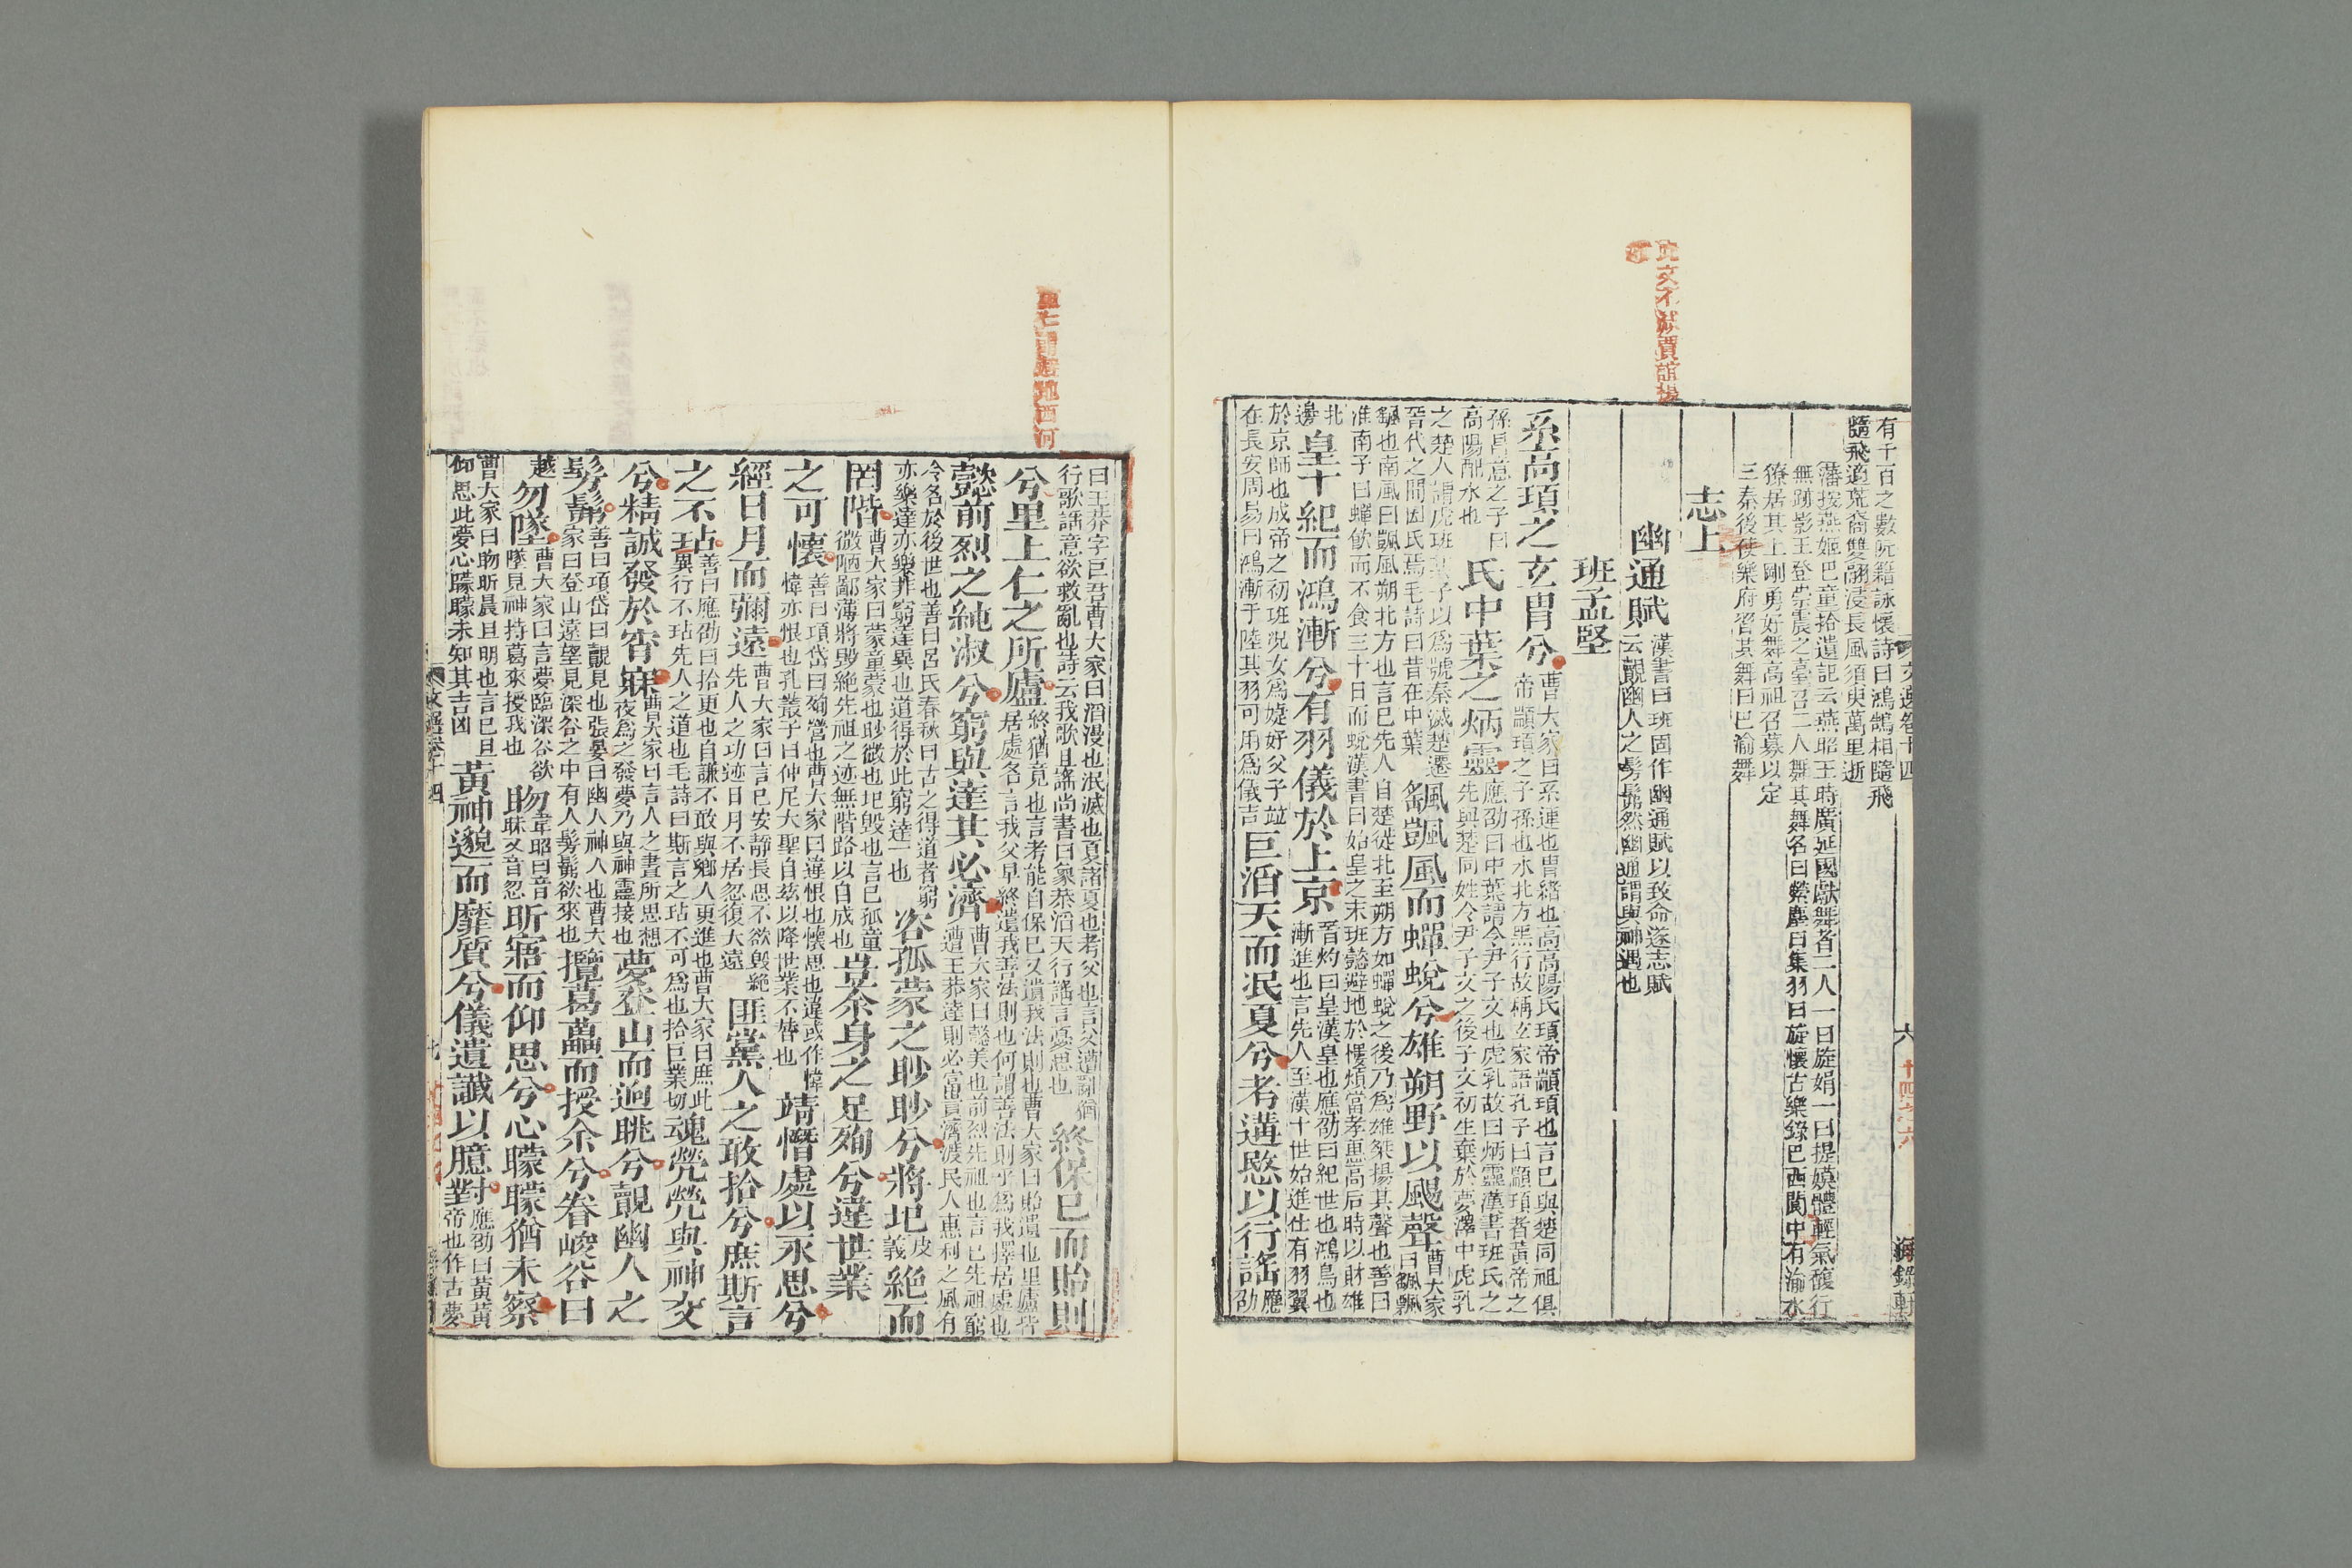 此文不減賈誼揚
有千百之數阮籍詠懷詩曰鴻鵠相隨飛
隨飛適荒裔雙翮淩長風須臾萬里逝
藩按燕姬巴童拾遺記云燕昭王時廣延國獻舞者二人一曰旋娟一曰提嫫體輕氣馥行
無跡影王登崇霞之臺召二人舞其舞名曰縈塵曰集羽曰旋懷古樂錄巴西閬中有渝水
獠居其上剛勇好舞高祖召募以定
三秦後使樂府習其舞曰巴渝舞
志上
幽通賦
漢書曰班固作幽通賦以致命遂志賦
云覿幽人之髣髴然幽通謂與神遇也
班孟堅
系高頊之玄胄兮
曹大家曰系連也胄緒也高高陽氏頊帝顓頊也言已與楚同祖俱
帝顓頊之子孫也水北方黑行故稱玄家語孔子曰顓頊者黃帝之
孫昌意之子曰
高陽配水也
氏中葉之炳靈
應劭曰中葉謂令尹子文也虎乳故曰炳靈漢書班氏之
先與楚同姓令尹子文之後子文初生棄於夢澤中虎乳
之楚人謂虎班其子以爲號秦滅楚遷
晉代之間因氏焉毛詩曰昔在中葉
繇凱風而蟬蛻兮雄朔野以颺聲
曹大家
曰繇飄
飄也南風曰凱風朔北方也言已先人自楚徙北至朔方如蟬蛻之後乃爲雄桀揚其聲也善曰
淮南子曰蟬飲而不食三十日而蛻漢書曰始皇之末班懿避地於樓煩當孝惠高后時以財雄
北
邊
皇十紀而鴻漸兮有羽儀於上京
晉灼曰皇漢皇也應劭曰紀世也鴻鳥也
漸進也言先人至漢十世始進仕有羽翼
於京師也成帝之初班況女爲婕妤父子並
在長安周易曰鴻漸于陸其羽可用爲儀吉
巨滔天而泯夏兮考遘愍以行謠
應
劭
文選卷十四
六
海錄軒
曰王莽字巨君曹大家曰滔漫也泯滅也夏諸夏也考父也言父遭亂猶
行歌謠意欲救亂也詩云我歌且謠尚書曰象恭滔天行謠言憂思也
終保己而貽則
兮里上仁之所廬
終猶竟也言考能自保己又遺我法則也曹大家曰貽遺也里廬皆
居處各言我父早終遺我善法則也何謂善法則乎爲我擇居處也
懿前烈之純淑兮窮與達其必濟
曹大家曰懿美也前烈先祖也言已先祖窮
遭王莽達則必富貴濟渡民人惠利之風有
令名於後世也善曰呂氏春秋曰古之得道者窮
亦樂達亦樂非窮達異也道得於此窮達一也
咨孤蒙之眇眇兮將圮
皮
義
絕而
罔階
曹大家曰蒙童蒙也眇微也圮毀也言已孤童
微陋鄙薄將毀絕先祖之迹無階路以自成也
豈余身之足殉兮違世業
之可懷
善曰項岱曰殉營也曹大家曰違恨也懷思也違或作愇
愇亦恨也孔叢子曰仲尼大聖自茲以降世業不替也
靖潛處以永思兮
經日月而彌遠
曹大家曰言已安靜長思不欲毀絕
先人之功迹日月不居忽復大遠
匪黨人之敢拾兮庶斯言
之不玷
善曰應劭曰拾更也自謙不敢與鄉人更進也曹大家曰庶此
異行不玷先人之道也毛詩曰斯言之玷不可爲也拾巨業切
魂煢煢與神交
兮精誠發於宵寐
曹大家曰言人之晝所思想
夜爲之發夢乃與神靈接也
夢登山而迥眺兮覿幽人之
髣髴
善曰項岱曰覿見也張晏曰幽人神人也曹大
家曰登山遠望見深谷之中有人髣髴欲來也
攬葛藟而授余兮眷峻谷曰
越
勿墜
曹大家曰言夢臨深谷欲
墜見神持葛來授我也
昒
韋昭曰音
昧又音忽
昕寤而仰思兮心曚曚猶未察
曹大家曰昒昕晨旦明也言已旦
仰思此夢心曚曚未知其吉凶
黃神邈而靡質兮儀遺讖以臆對
應劭曰黃黃
帝也作占夢
文選卷十四